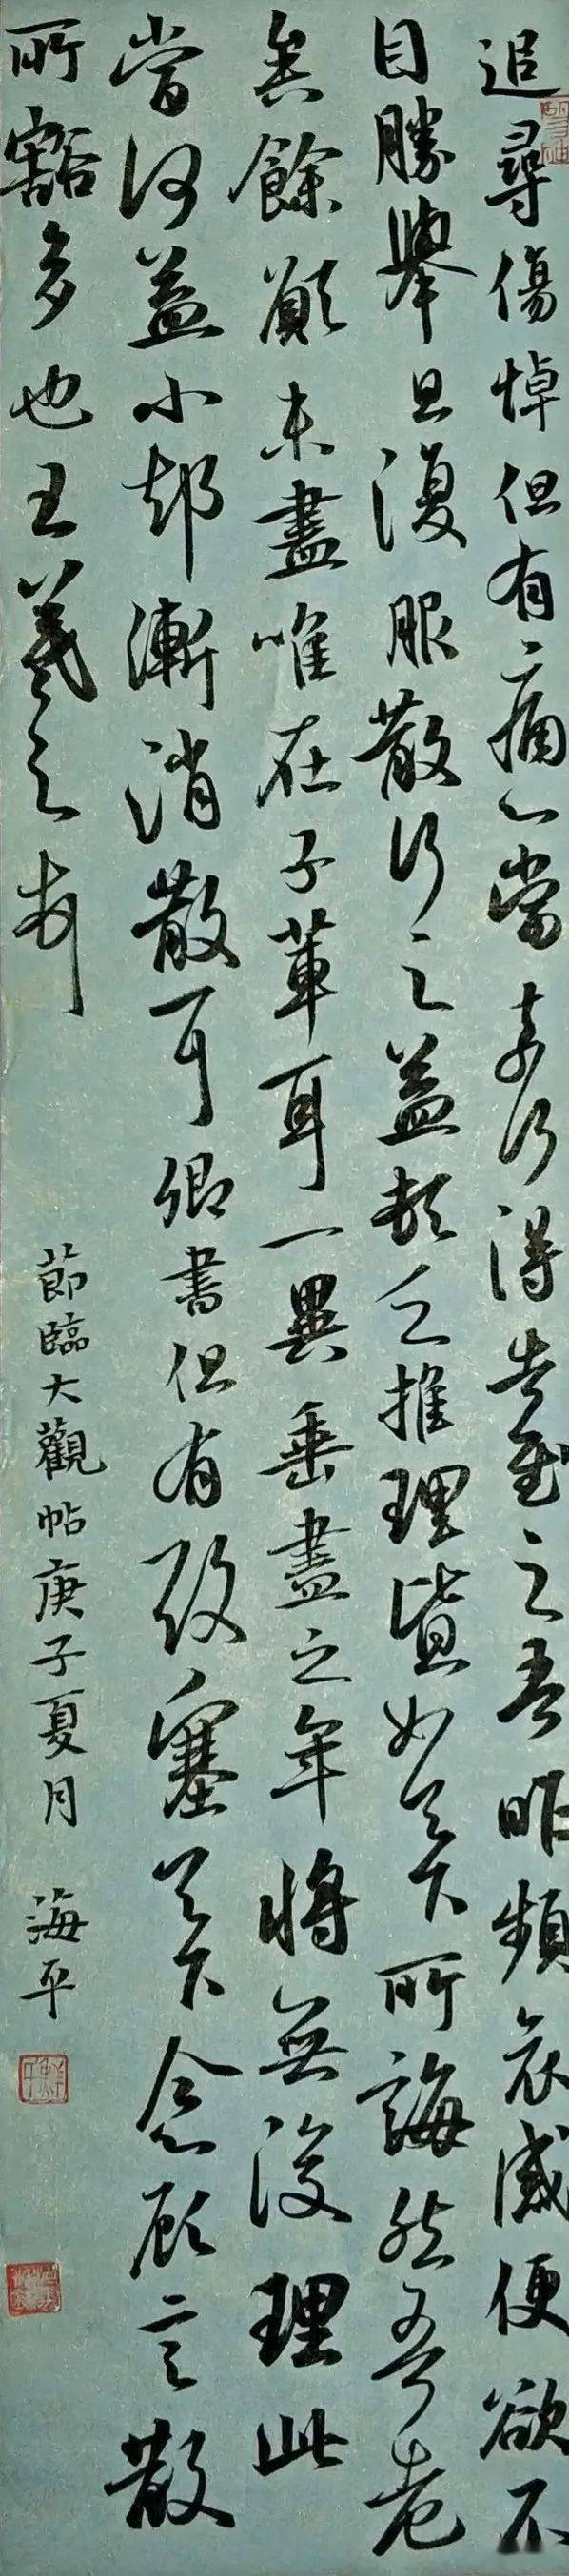 追尋傷悼但有痛心當奈何得告慰之吾昨頻哀感便欲不
自勝舉旦復服散行之益頓乏推理皆如足下所誨然吾老
矣餘願未盡唯在子輩耳一異垂盡之年將無復理此
當何益小卻漸消散耳卿書但有致塞足下念顧言散
所豁多也王羲之頓
節臨大觀帖庚子夏月 海平